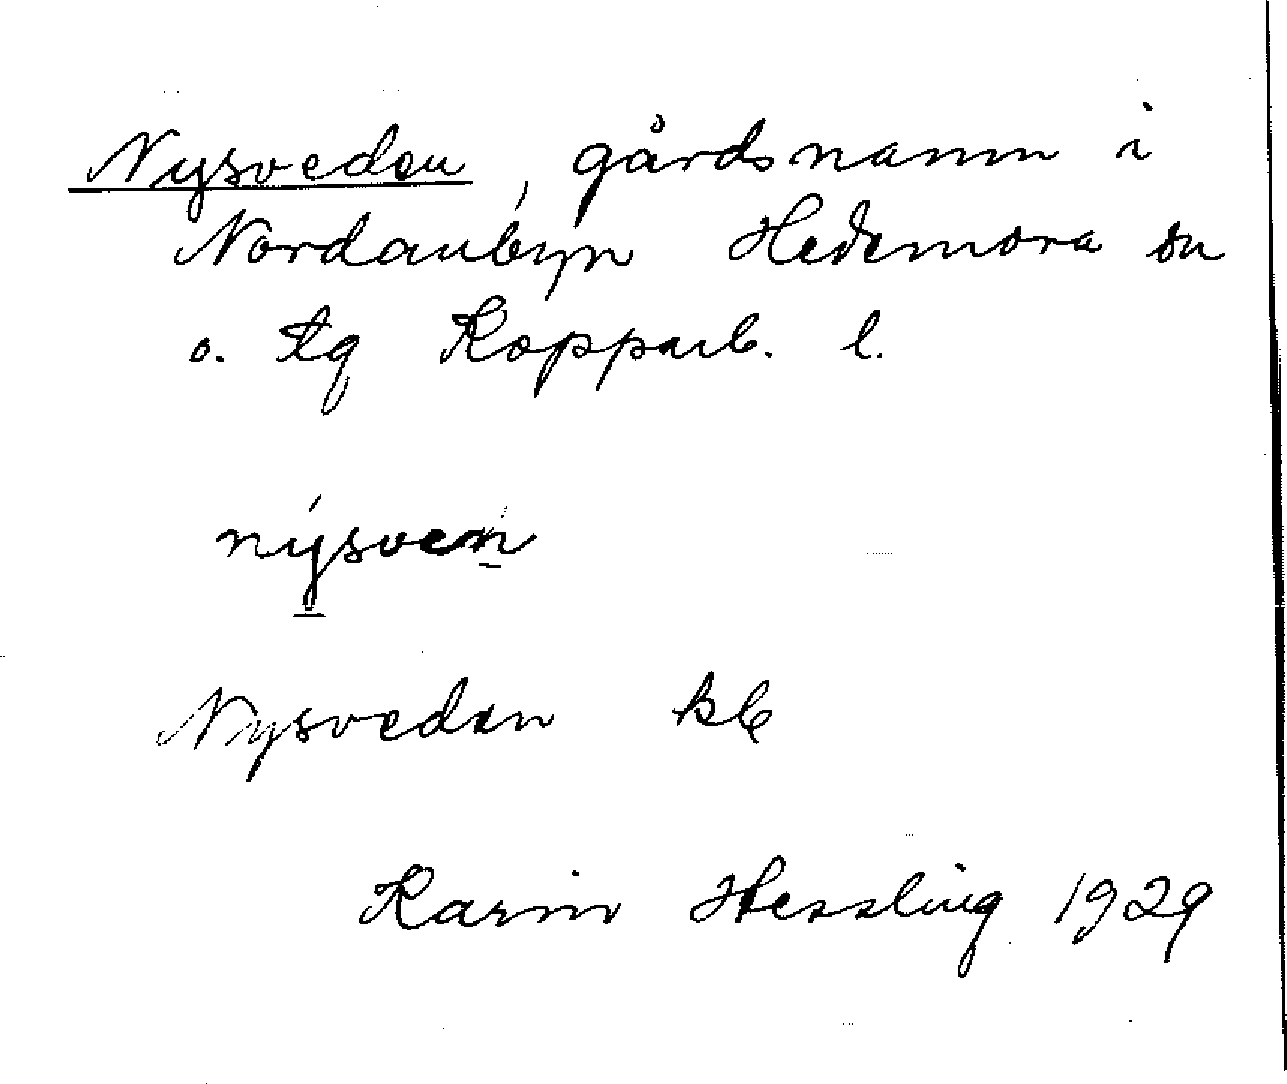 Nysveden, gårdsnamn i
Nordanbyn Hedemora sn
o. tg Kopparb. l.
nýsven
Nysveden kb
Karin Hessling 1929